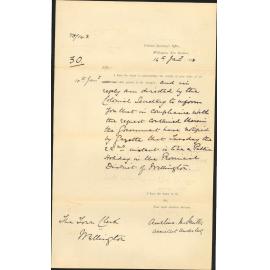 Colonial Secretary's Office,
Wellington, New Zealand
14th Jany
30.
Sir,
I have the honor to acknowledge the receipt of your letter of the
14th Jany and in
reply am directed by the
Colonial Secretary to inform
you that in compliance with
the request contained therein
the Government have notified
by Gazette that Tuesday the
22nd instant is to be a Public
Holiday in the Provincial
District of Wellington.
I have the honor to be,
Sir,
Your most obedient servant,
The Town Clerk
Wellington